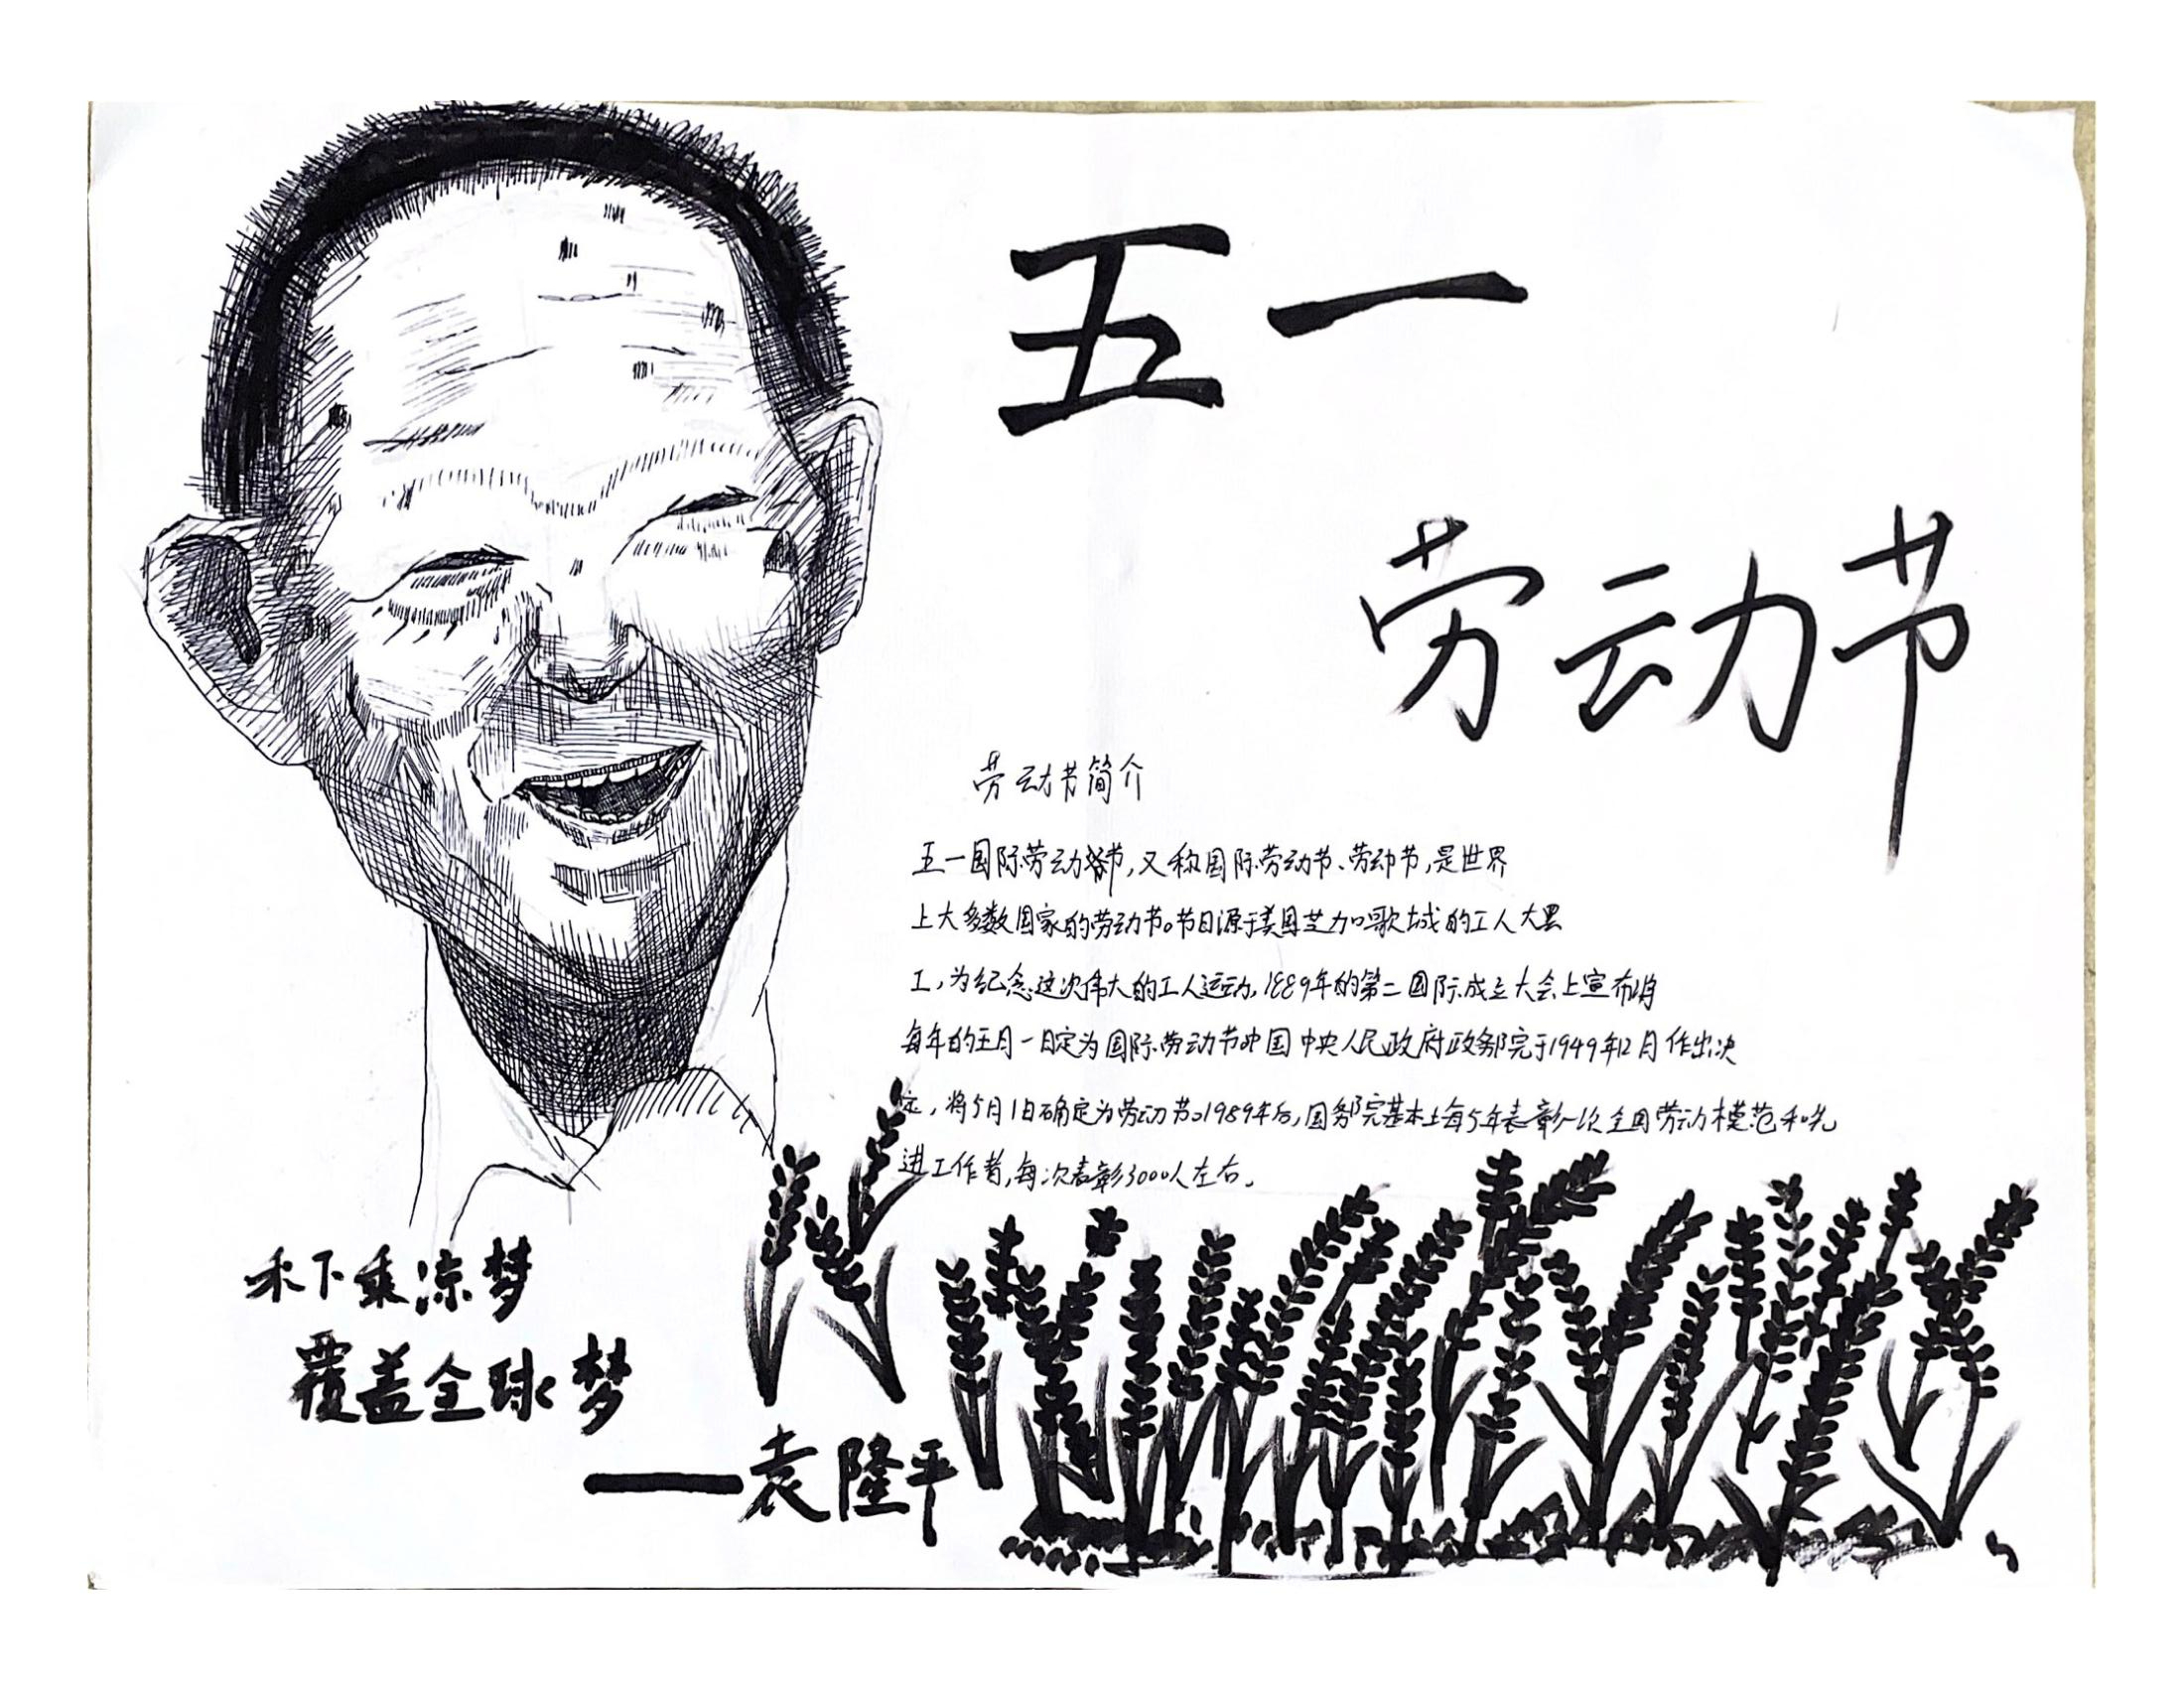 五一
劳动节
劳动节简介
五一国际劳动节,又称国际劳动节、劳动节,是世界
上大多数国家的劳动节。节日源于美国芝加哥城的工人大罢
工,为纪念这次伟大的工人运动,1889年的第二国际成立大会上宣布将
每年的五月一日定为国际劳动节。中国中央人民政府政务院于1949年12月作出决
定,将5月1日确定为劳动节。1989年后,国务院基本上每5年表彰一次全国劳动模范和先
进工作者,每次表彰3000人左右。
禾下乘凉梦
覆盖全球梦
——袁隆平